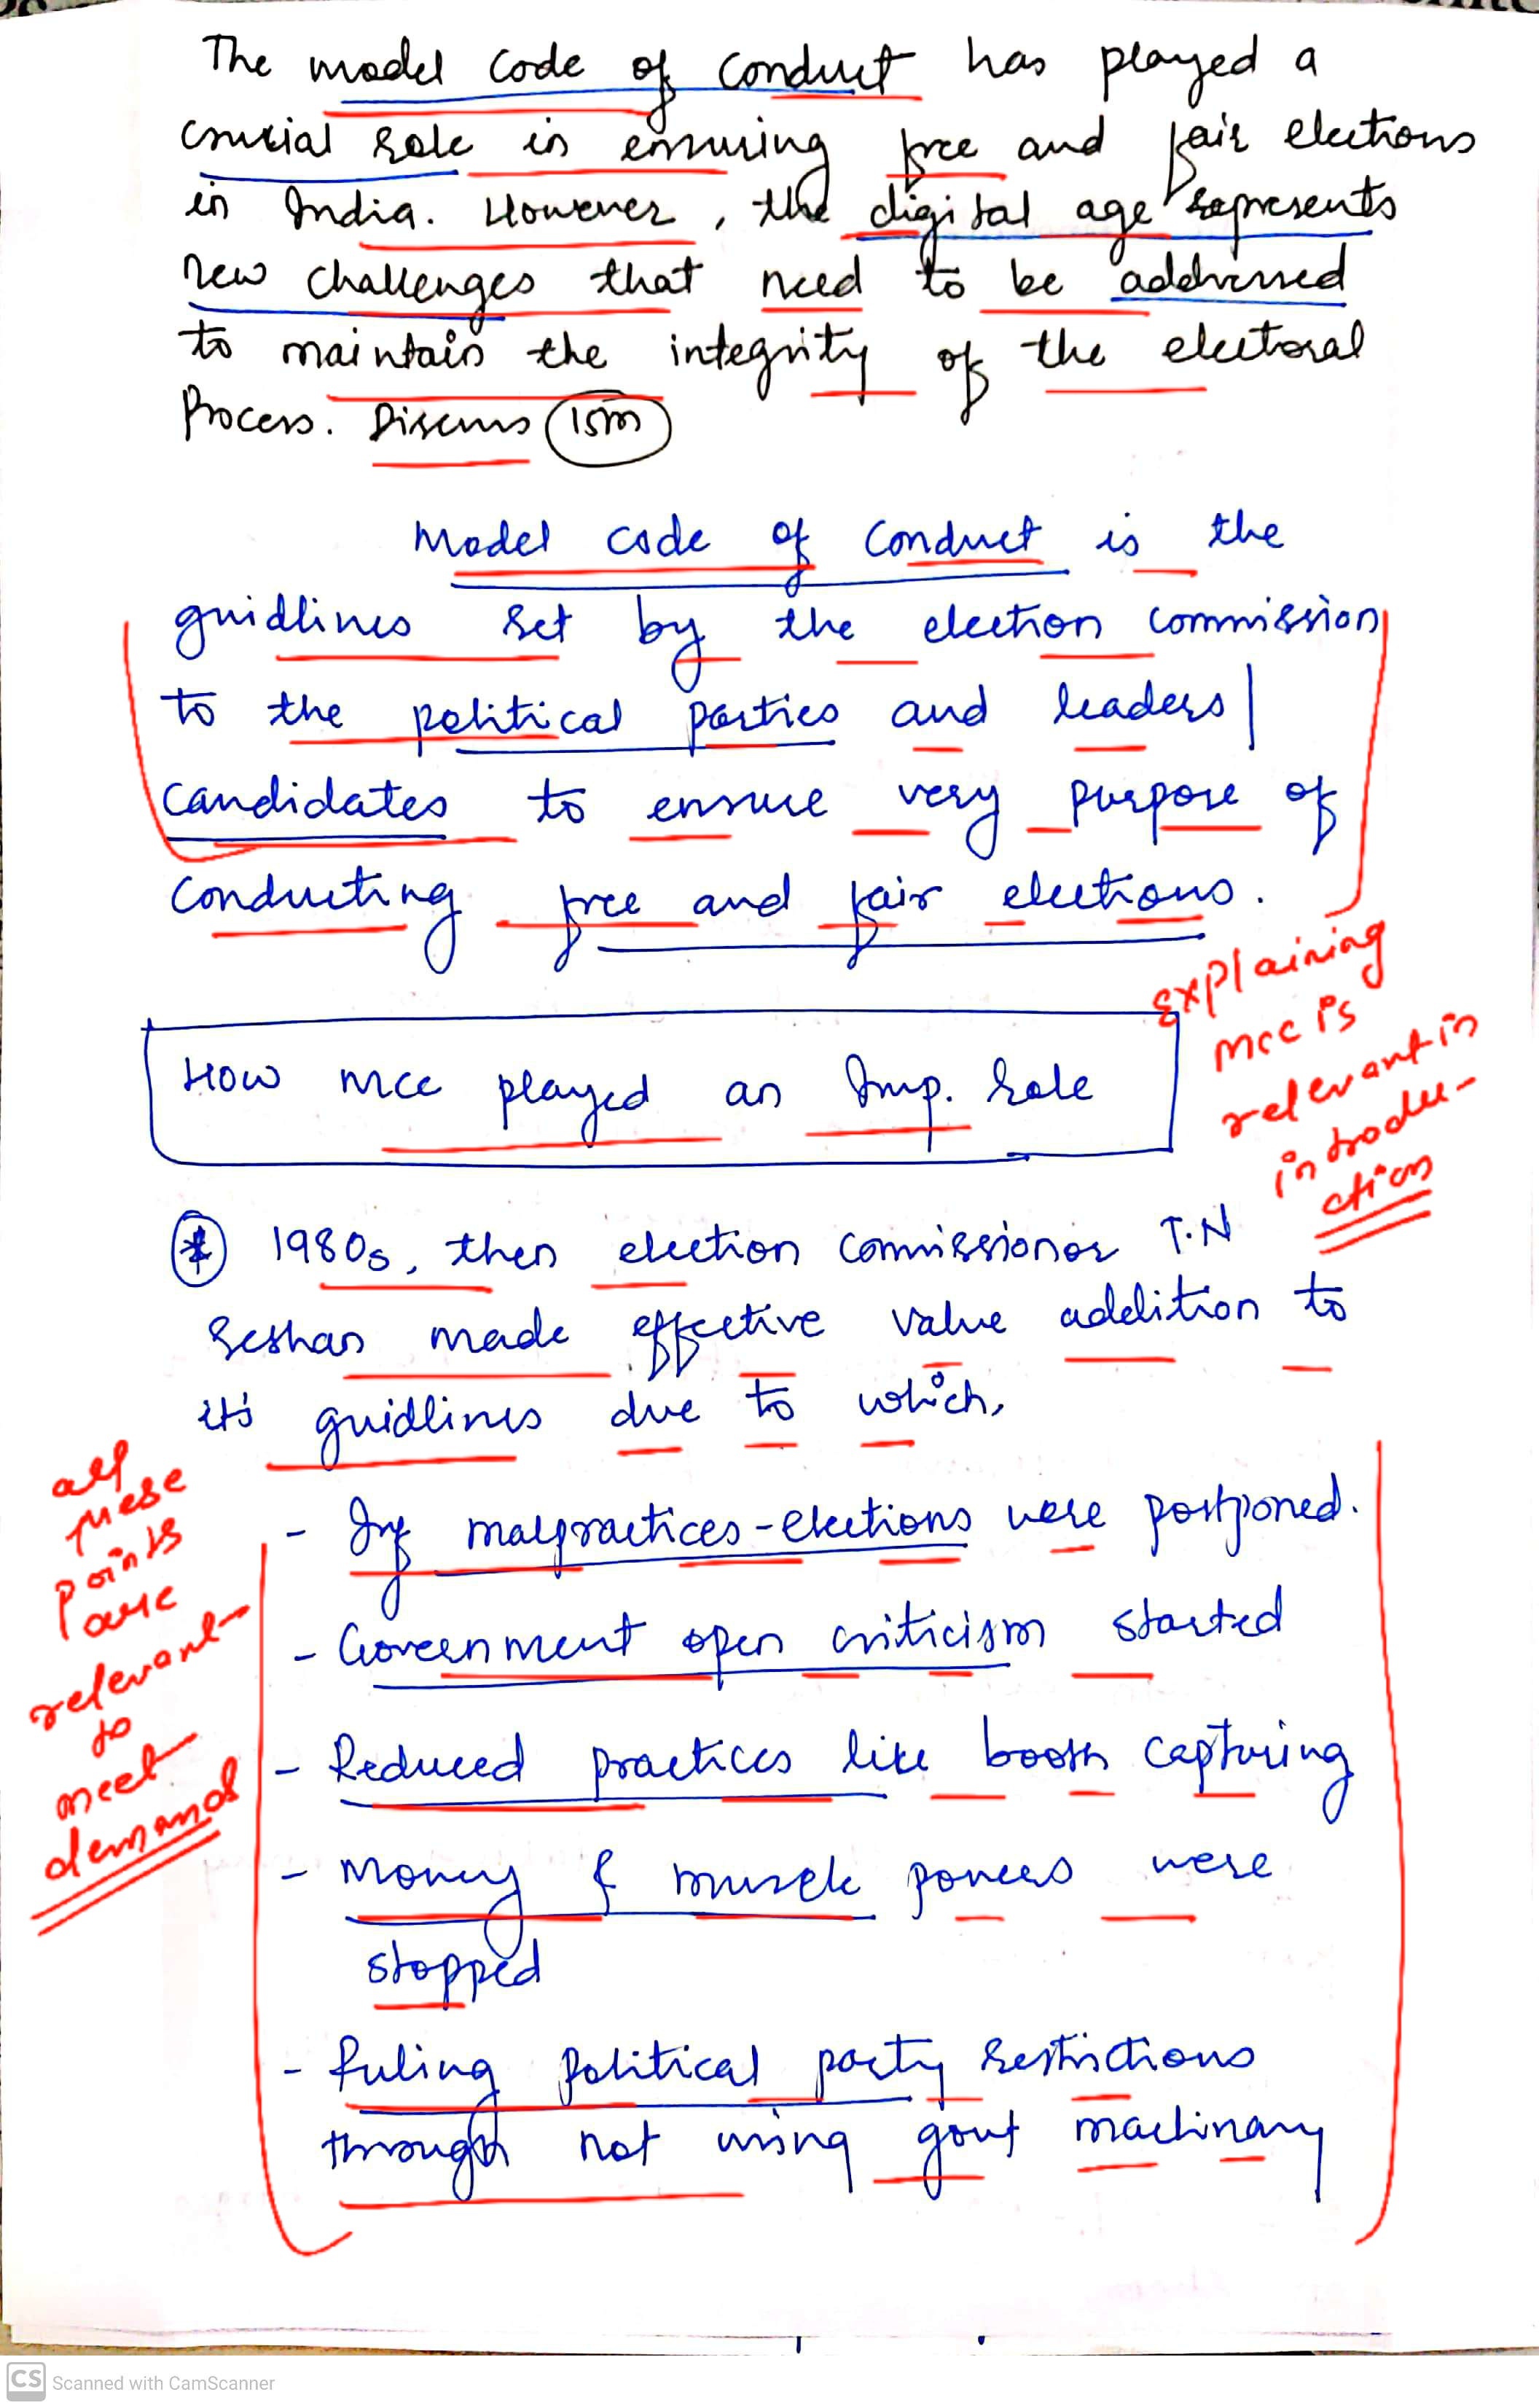 The model code of conduct has played a
crucial role in ensuring free and fair elections
in India. However, the digital age represents
new challenges that need to be addressed
to maintain the integrity of the electoral
Process. Discuss 15m
Model code of conduct is the
guidlines set by the election commission
to the political parties and leaders/
candidates to ensure very purpose of
conducting free and fair elections.
explaining
mcc is
relevant in
introdu-
ction
How mcc played an Imp. role
* 1980s, then election commissioner T.N
Seshan made effective value addition to
it's guidlines due to which,
all
these
points
are
relevant
to
meet
demand
- If malpractices - elections were postponed.
- Government open criticism started
- Reduced practices like booth capturing
- Money & muscle powers were
stopped
- Ruling political party restrictions
through not using govt machinary
CS Scanned with CamScanner